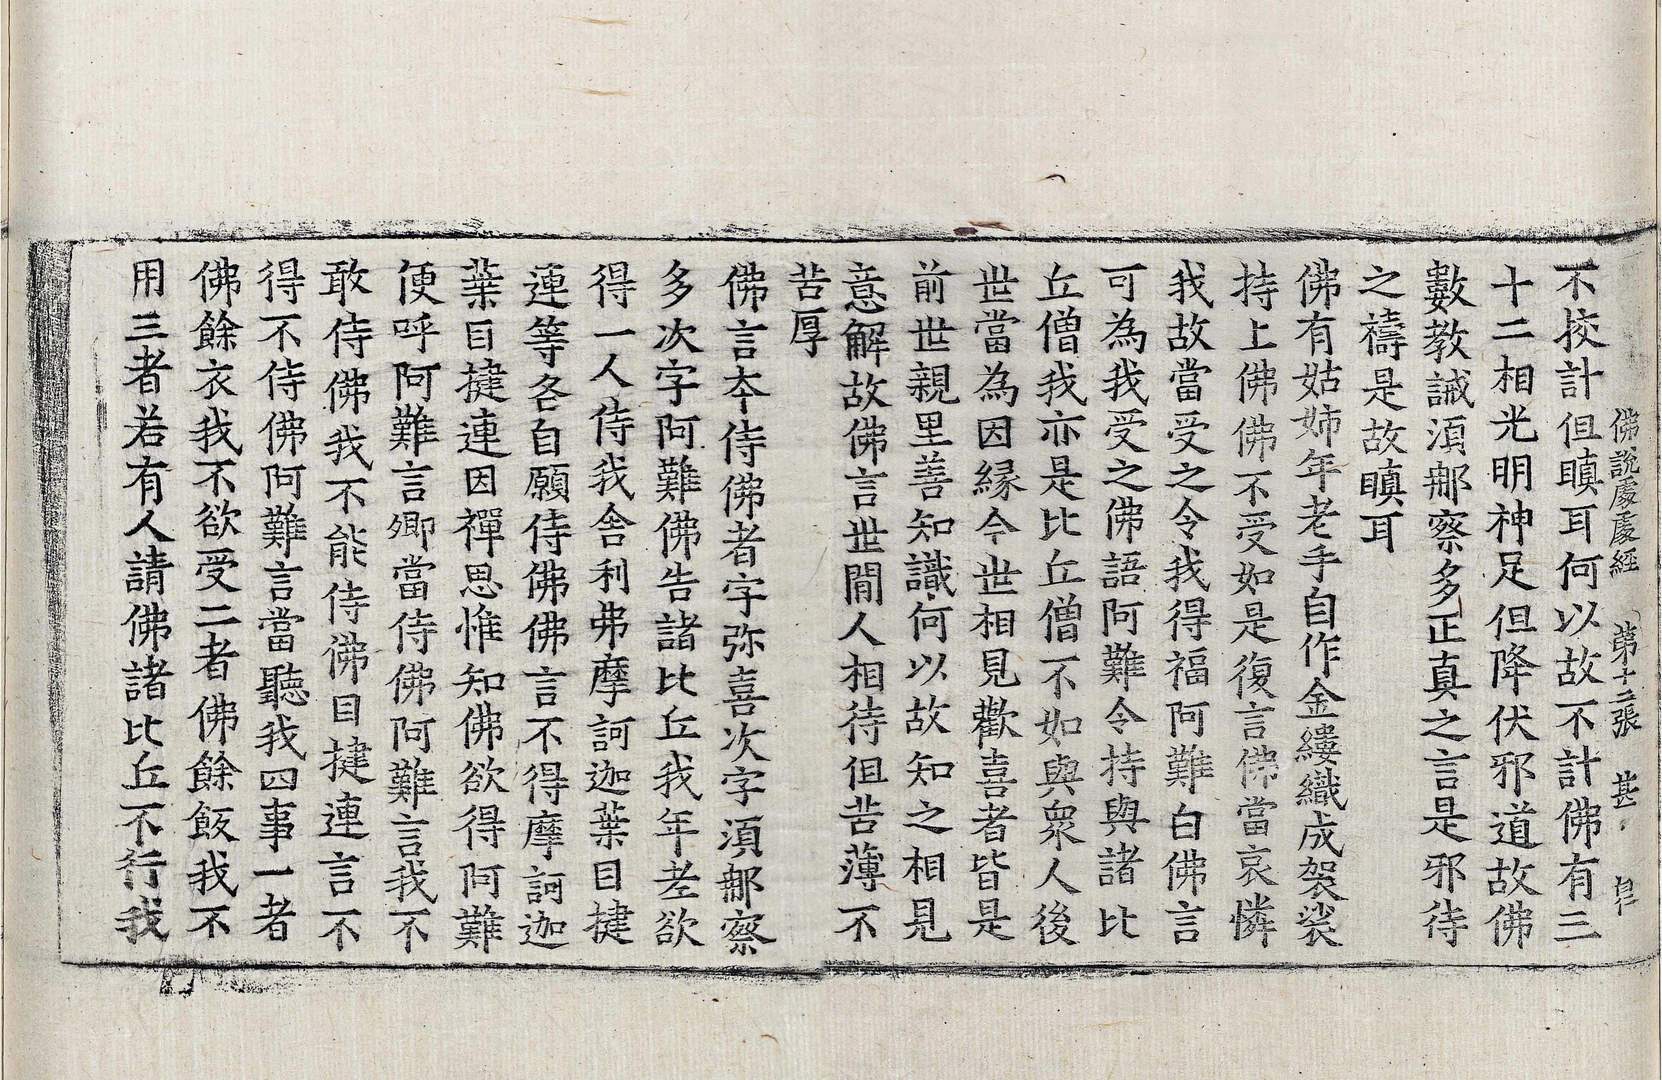 佛說處處經 第十二張 甚
不挍計但瞋耳何以故不計佛有三
十二相光明神足但降伏邪道故佛
數教誡湏郍察多正真之言是邪待
之禱是故瞋耳
佛有姑姉年老手自作金縷織成袈裟
持上佛佛不受如是復言佛當哀憐
我故當受之令我得福阿難白佛言
可為我受之佛語阿難令持與諸比
丘僧我亦是比丘僧不如與衆人後
世當為因縁今世相見歡喜者皆是
前世親里善知識何以故知之相見
意解故佛言世間人相待但苦薄不
苦厚
佛言夲侍佛者字弥喜次字湏郍察
多次字阿難佛告諸比丘我年老欲
得一人侍我舍利弗摩訶迦葉目揵
連等各自願侍佛佛言不得摩訶迦
葉目揵連因禪思惟知佛欲得阿難
便呼阿難言卿當侍佛阿難言我不
敢侍佛我不能侍佛目揵連言不
得不侍佛阿難言當聽我四事一者
佛餘衣我不欲受二者佛餘飯我不
用三者若有人請佛諸比丘不行我